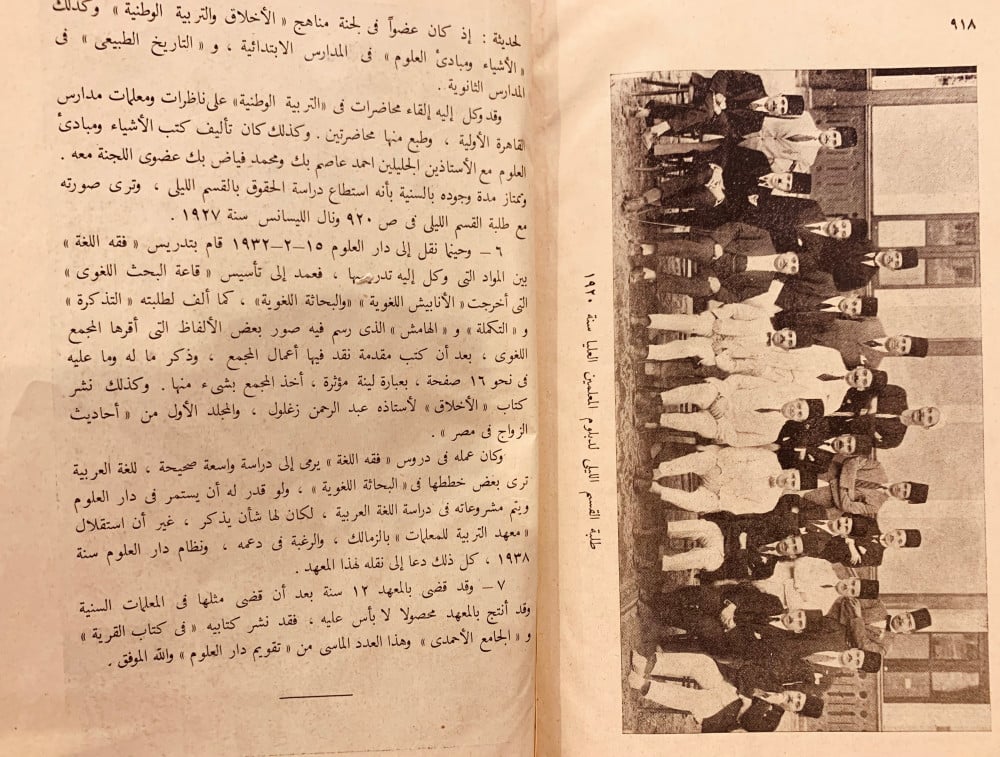 ٩١٨
طلبة القسم الليلى لدبلوم المعلمين العليا سنة ١٩٢٠
لحديثة : إذ كان عضواً فى لجنة مناهج « الأخلاق والتربية الوطنية » وكذلك
« الأشياء ومبادئ العلوم » فى المدارس الابتدائية ، و « التاريخ الطبيعى » فى
المدارس الثانوية .
وقد وكل إليه إلقاء محاضرات فى «التربية الوطنية» على ناظرات ومعلمات مدارس
القاهرة الأولية ، وطبع منها محاضرتين . وكذلك كان تأليف كتب الأشياء ومبادئ
العلوم مع الأستاذين الجليلين احمد عاصم بك ومحمد فياض بك عضوى اللجنة معه .
ويمتاز مدة وجوده بالسنية بأنه استطاع دراسة الحقوق بالقسم الليلى ، وترى صورته
مع طلبة القسم الليلى فى ص ٩٢٠ ونال الليسانس سنة ١٩٢٧ .
٦ – وحينما نقل إلى دار العلوم ١٥–٢–١٩٣٢ قام بتدريس « فقه اللغة »
بين المواد التى وكل إليه تدريسها ، فعمد إلى تأسيس « قاعة البحث اللغوى »
التى أخرجت « الأنابيش اللغوية » «والبحاثة اللغوية» ، كما ألف لطلبته « التذكرة »
و « التكملة » و « الهامش » الذى رسم فيه صور بعض الألفاظ التى أقرها المجمع
اللغوى ، بعد أن كتب مقدمة نقد فيها أعمال المجمع ، وذكر ما له وما عليه
فى نحو ١٦ صفحة ، بعبارة لينة مؤثرة ، أخذ المجمع بشىء منها . وكذلك نشر
كتاب « الأخلاق » لأستاذه عبد الرحمن زغلول ، والمجلد الأول من « أحاديث
الزواج فى مصر » .
وكان عمله فى دروس « فقه اللغة » يرمى إلى دراسة واسعة صحيحة ، للغة العربية
ترى بغض خططها فى « البحاثة اللغوية » ، ولو قدر له أن يستمر فى دار العلوم
ويتم مشروعاته فى دراسة اللغة العربية ، لكان لها شأن يذكر ، غير أن استقلال
« معهد التربية للمعلمات » بالزمالك ، والرغبة فى دعمه ، ونظام دار العلوم سنة
١٩٣٨ ، كل ذلك دعا إلى نقله لهذا المعهد .
٧ – وقد قضى بالمعهد ١٢ سنة بعد أن قضى مثلها فى المعلمات السنية
وقد أنتج بالمعهد محصولا لا بأس عليه ، فقد نشر كتابيه « فى كتاب القرية »
و « الجامع الأحمدى » وهذا العدد الماسى من « تقويم دار العلوم » والله الموفق .